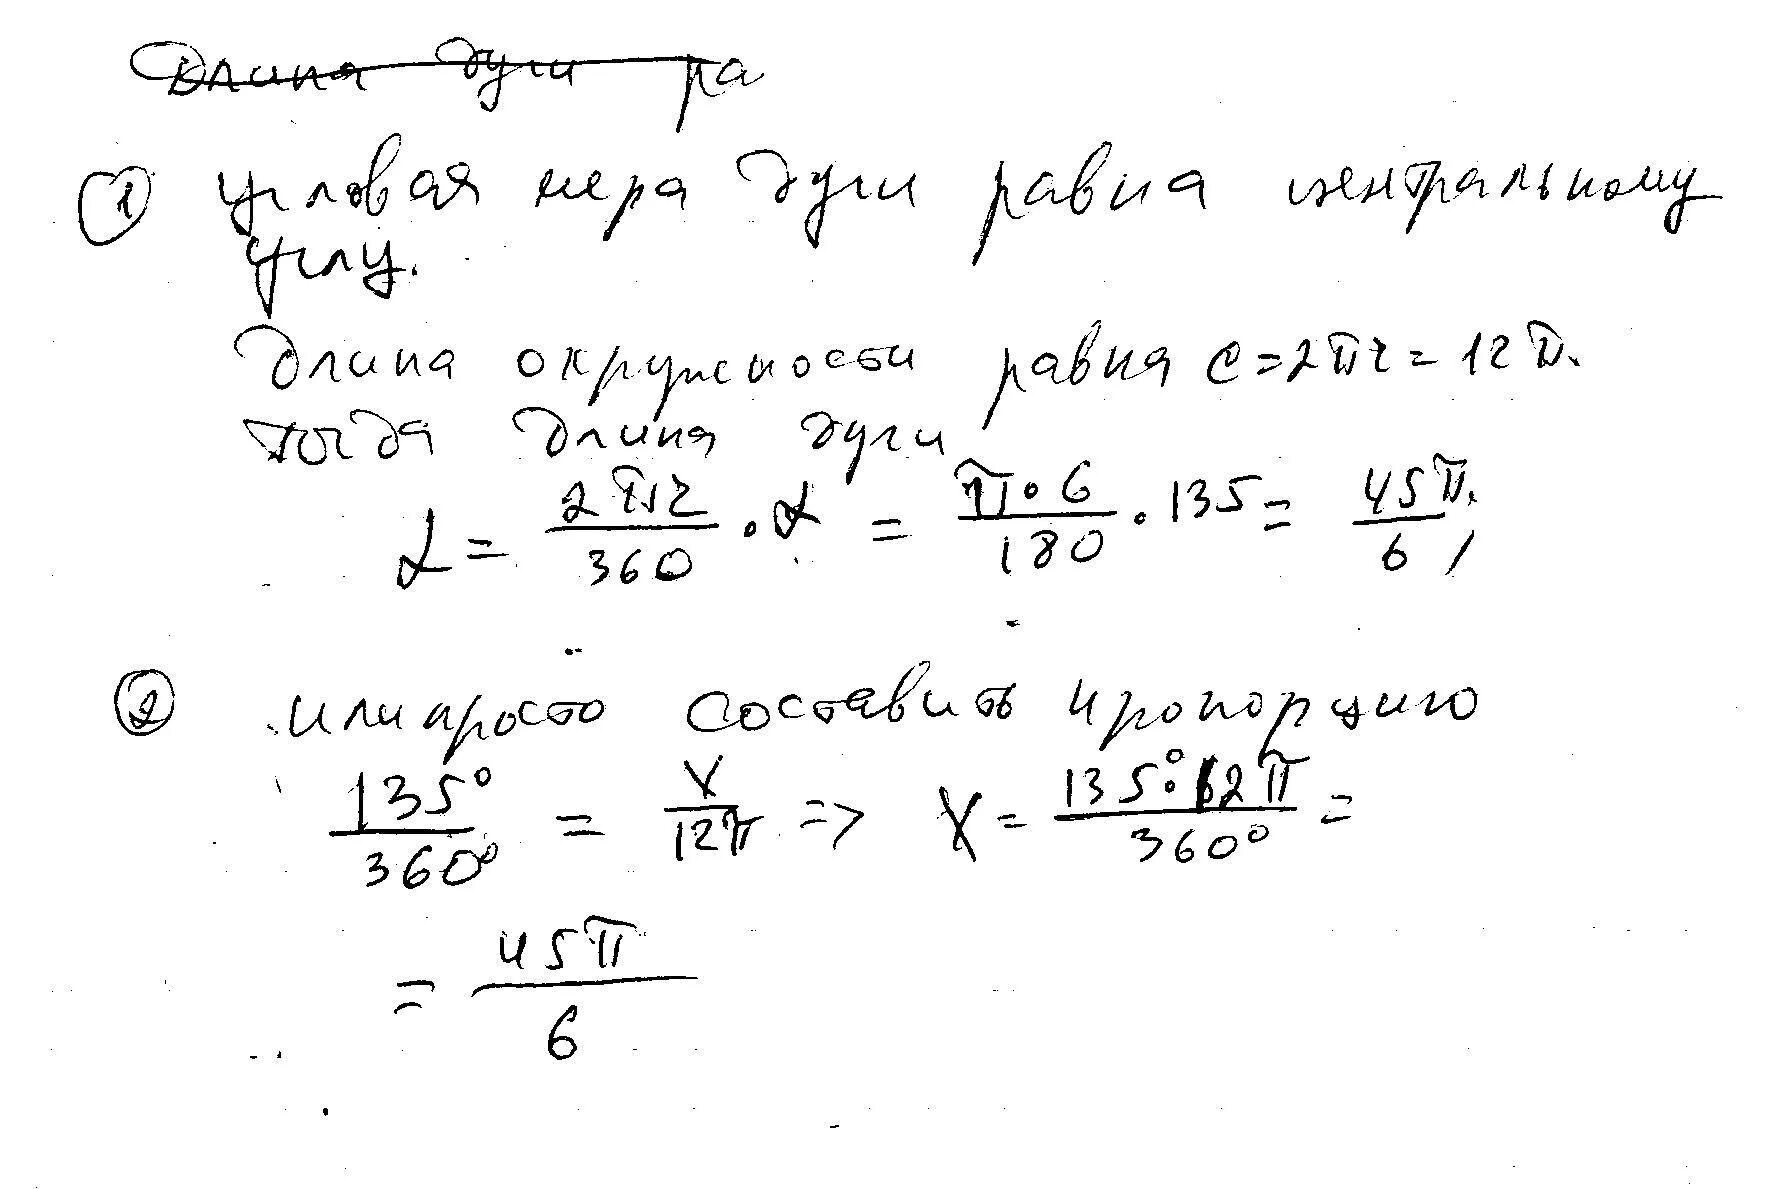 Длина дуги ра
① угловая мера дуги равна центральному
углу.
Длина окружности равна C = 2πr = 12π.
тогда длина дуги
L = 2πr/360 · α = π·6/180 · 135 = 45π/6,
② или просто составить пропорцию
135°/360° = x/12π => x = 135°·12π/360° =
= 45π/6